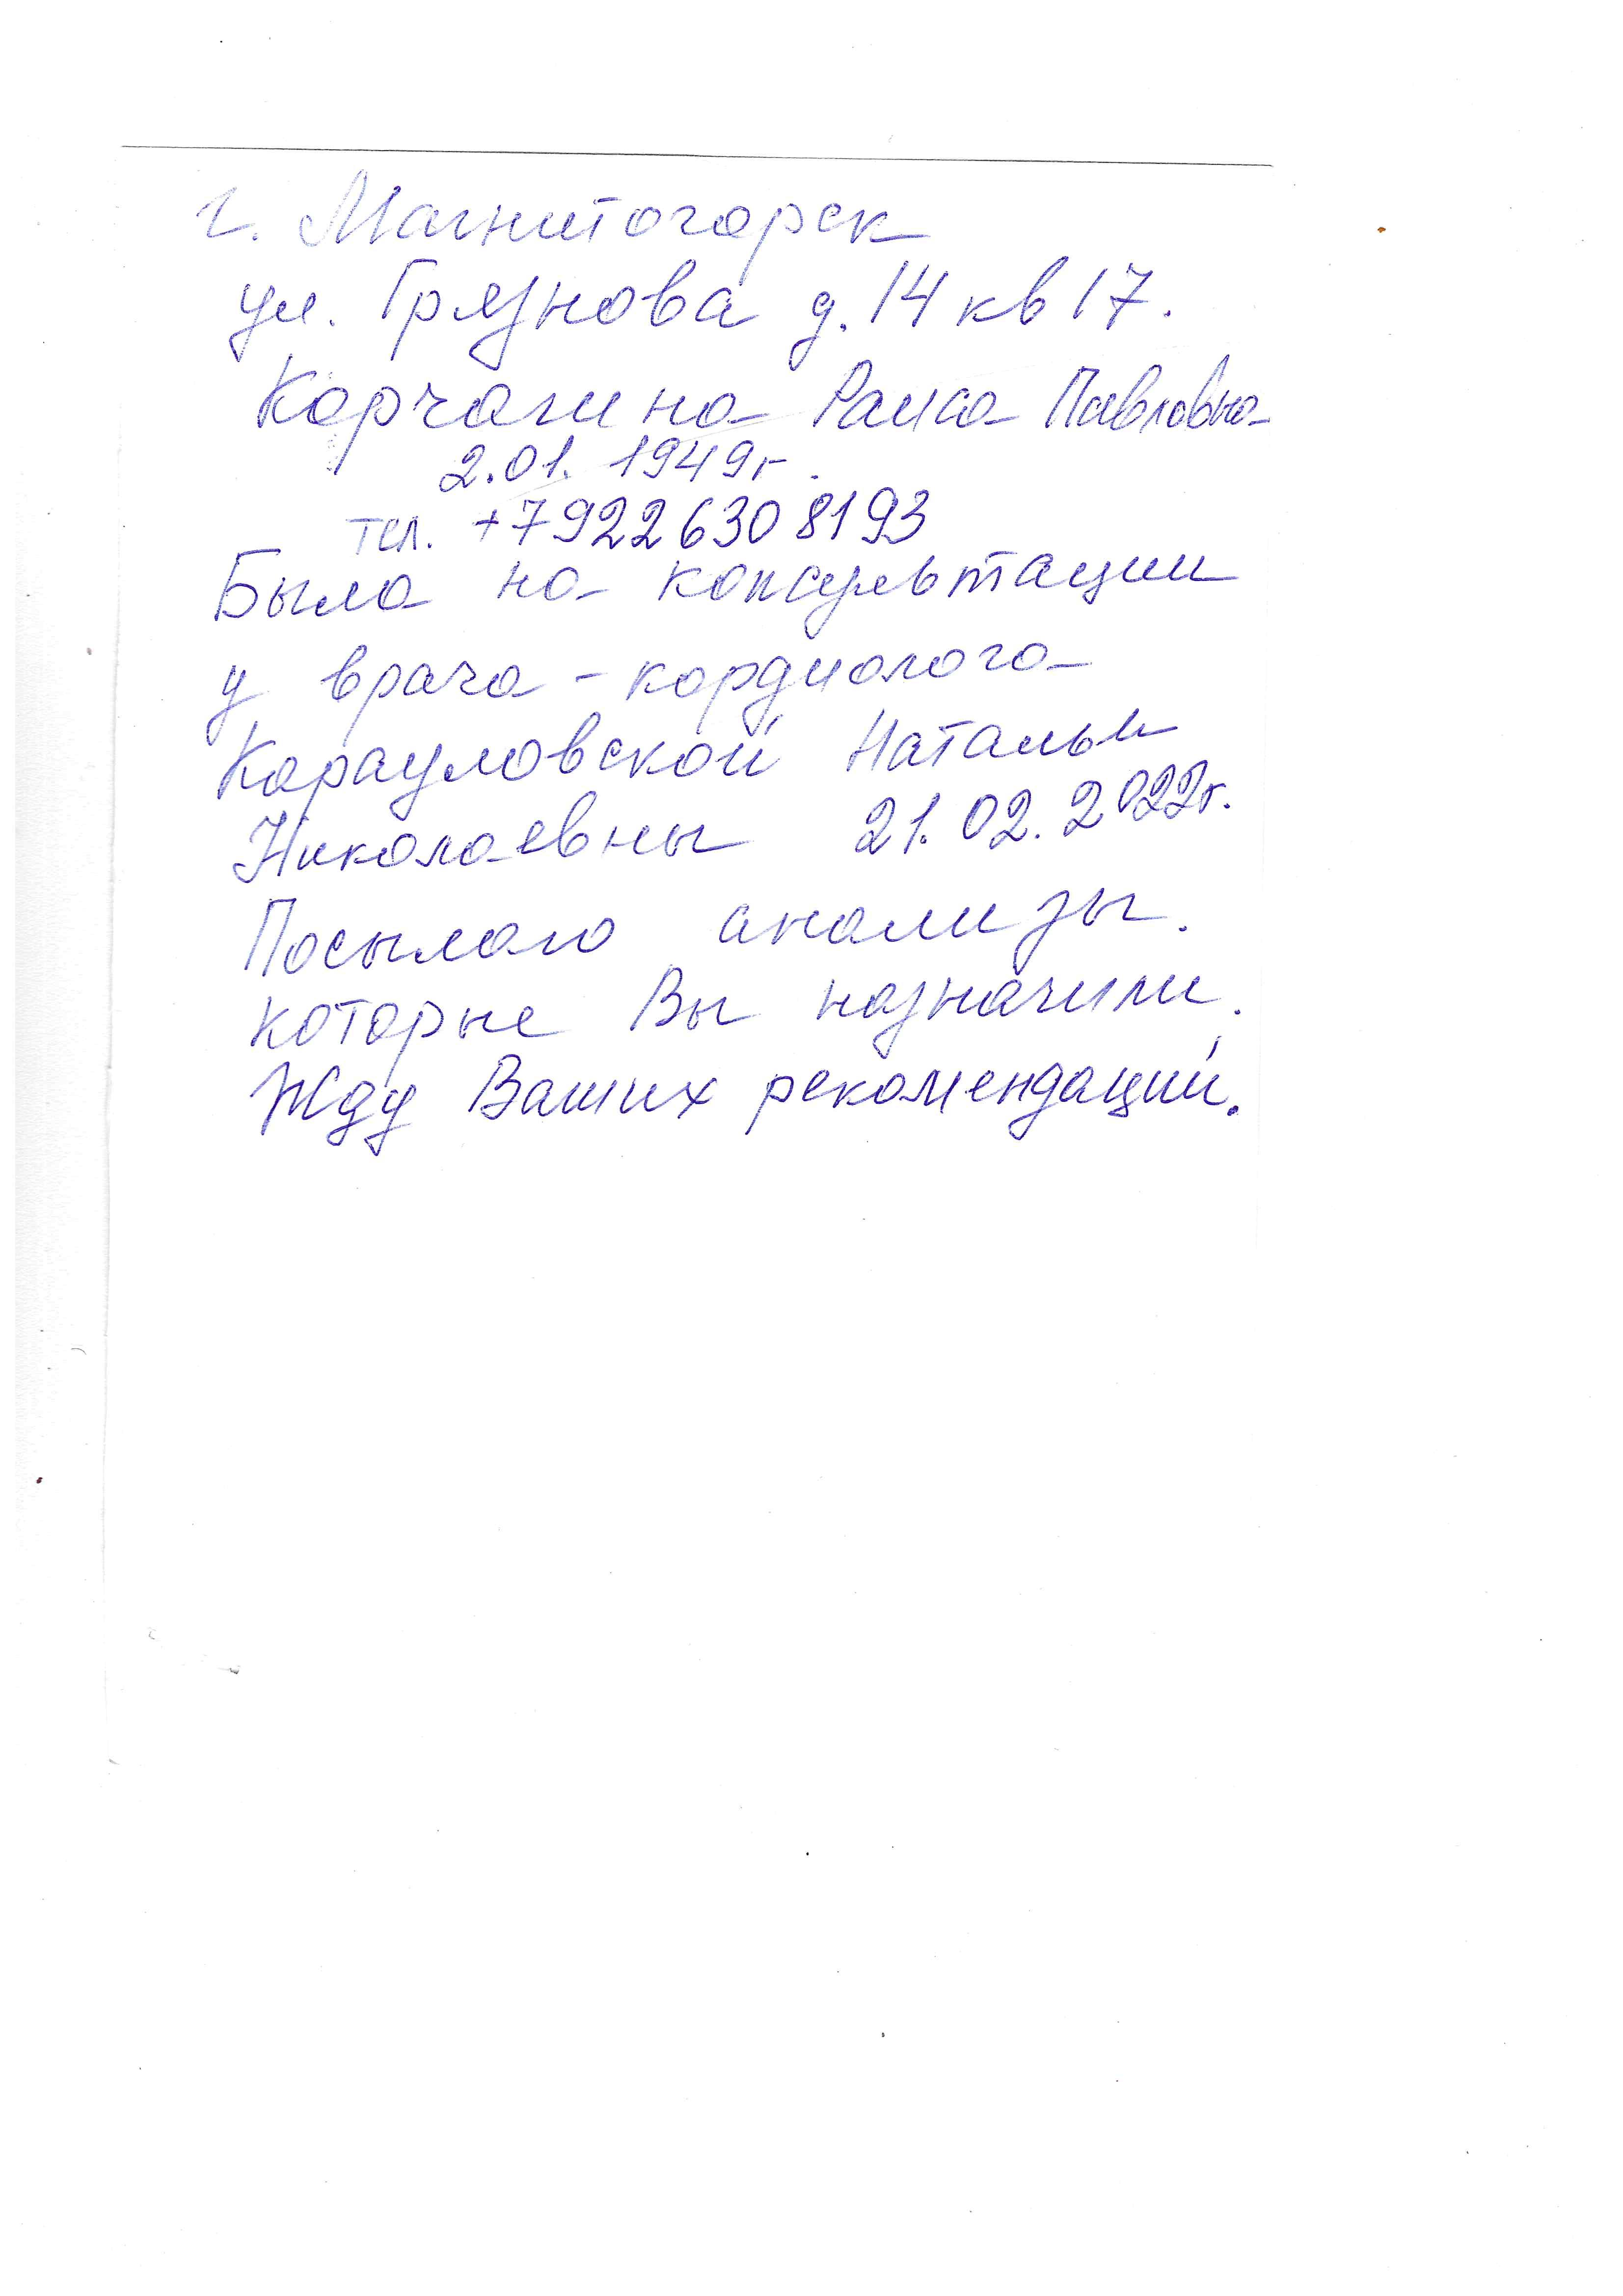 г. Магнитогорск
ул. Грязнова д. 14 кв 17.
Корчагина Раиса Павловна
2.01. 1949г.
тел. +7922 630 8193
Была на консультации
у врача - кардиолога
Карауловской Натальи
Николаевны 21.02.2022г.
Посылаю анализы.
которые Вы назначили.
Жду Ваших рекомендаций.